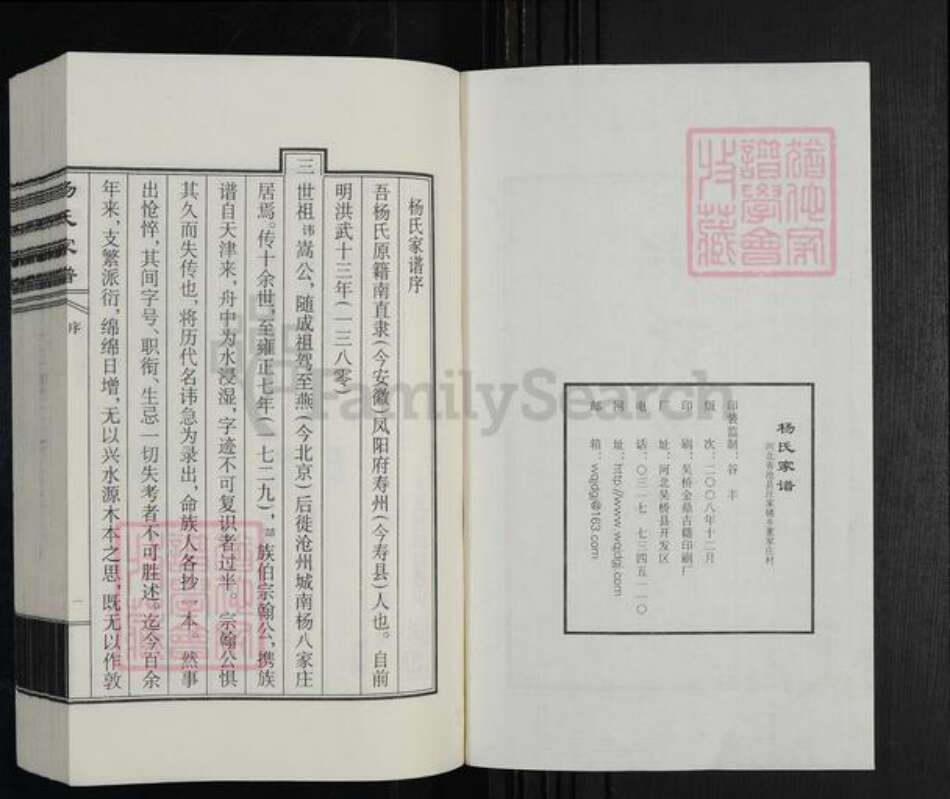 杨氏家谱
河北省沧县汪家铺乡董家庄村
印装监制：谷 丰
版 次：二〇〇八年十二月
印 刷：吴桥金鼎古籍印刷厂
厂 址：河北吴桥县开发区
电 话：〇三一七 七三四五一一〇
网 址：http://www.wqdg.com
邮 箱：wqdg@163.com
杨氏家谱序
吾杨氏原籍南直隶（今安徽）凤阳府寿州（今寿县）人也。自前
明洪武十三年（一三八零）
三世祖讳嵩公，随成祖驾至燕（今北京）后徙沧州城南杨八家庄
居焉。传十余世，至雍正七年一七二九），族伯宗翰公，携族
谱自天津来，舟中为水浸湿，字迹不可复识者过半。宗翰公惧
其久而失传也，将历代名讳急为录出，命族人各抄一本。然事
出怆悴，其间字号、职衔、生忌一切失考者不可胜述。迄今百余
年来，支繁派衍，绵绵日增，无以兴水源木本之思，既无以作敦
杨氏家谱
序
一
FamilySearch
谱学会
收藏